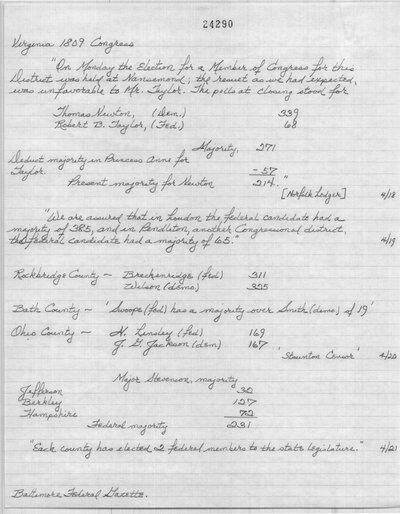 24290
Virginia 1809 Congress
"On Monday the Election for a Member of Congress for this
District was held at Nansemond; the result as we had expected,
was unfavorable to Mr. Taylor. The polls at closing stood for
Thomas Newton, (Dem.) 339
Robert B. Taylor, (Fed.) 68
Majority, 271
Deduct majority in Princess Anne for
Taylor. - 57
Present majority for Newton 214."
[Norfolk Ledger] 4/18
"We are assured that in Loudon the federal candidate had a
majority of 385, and in Pendleton, another Congressional district,
the federal candidate had a majority of 65." 4/19
Rockbridge County - Breckenridge (fed) 311
Wilson (demo) 325
Bath County - 'Swoope (fed) has a majority over Smith (demo) of 19'
Ohio County - N. Linsley (fed) 169
J. G. Jackson (dem) 167
'Staunton Censor' 4/20
Major Stevenson, majority
Jefferson 32
Berkley 127
Hampshire 72
Federal majority 231
"Each county has elected 2 federal members to the state legislature." 4/21
Baltimore Federal Gazette.